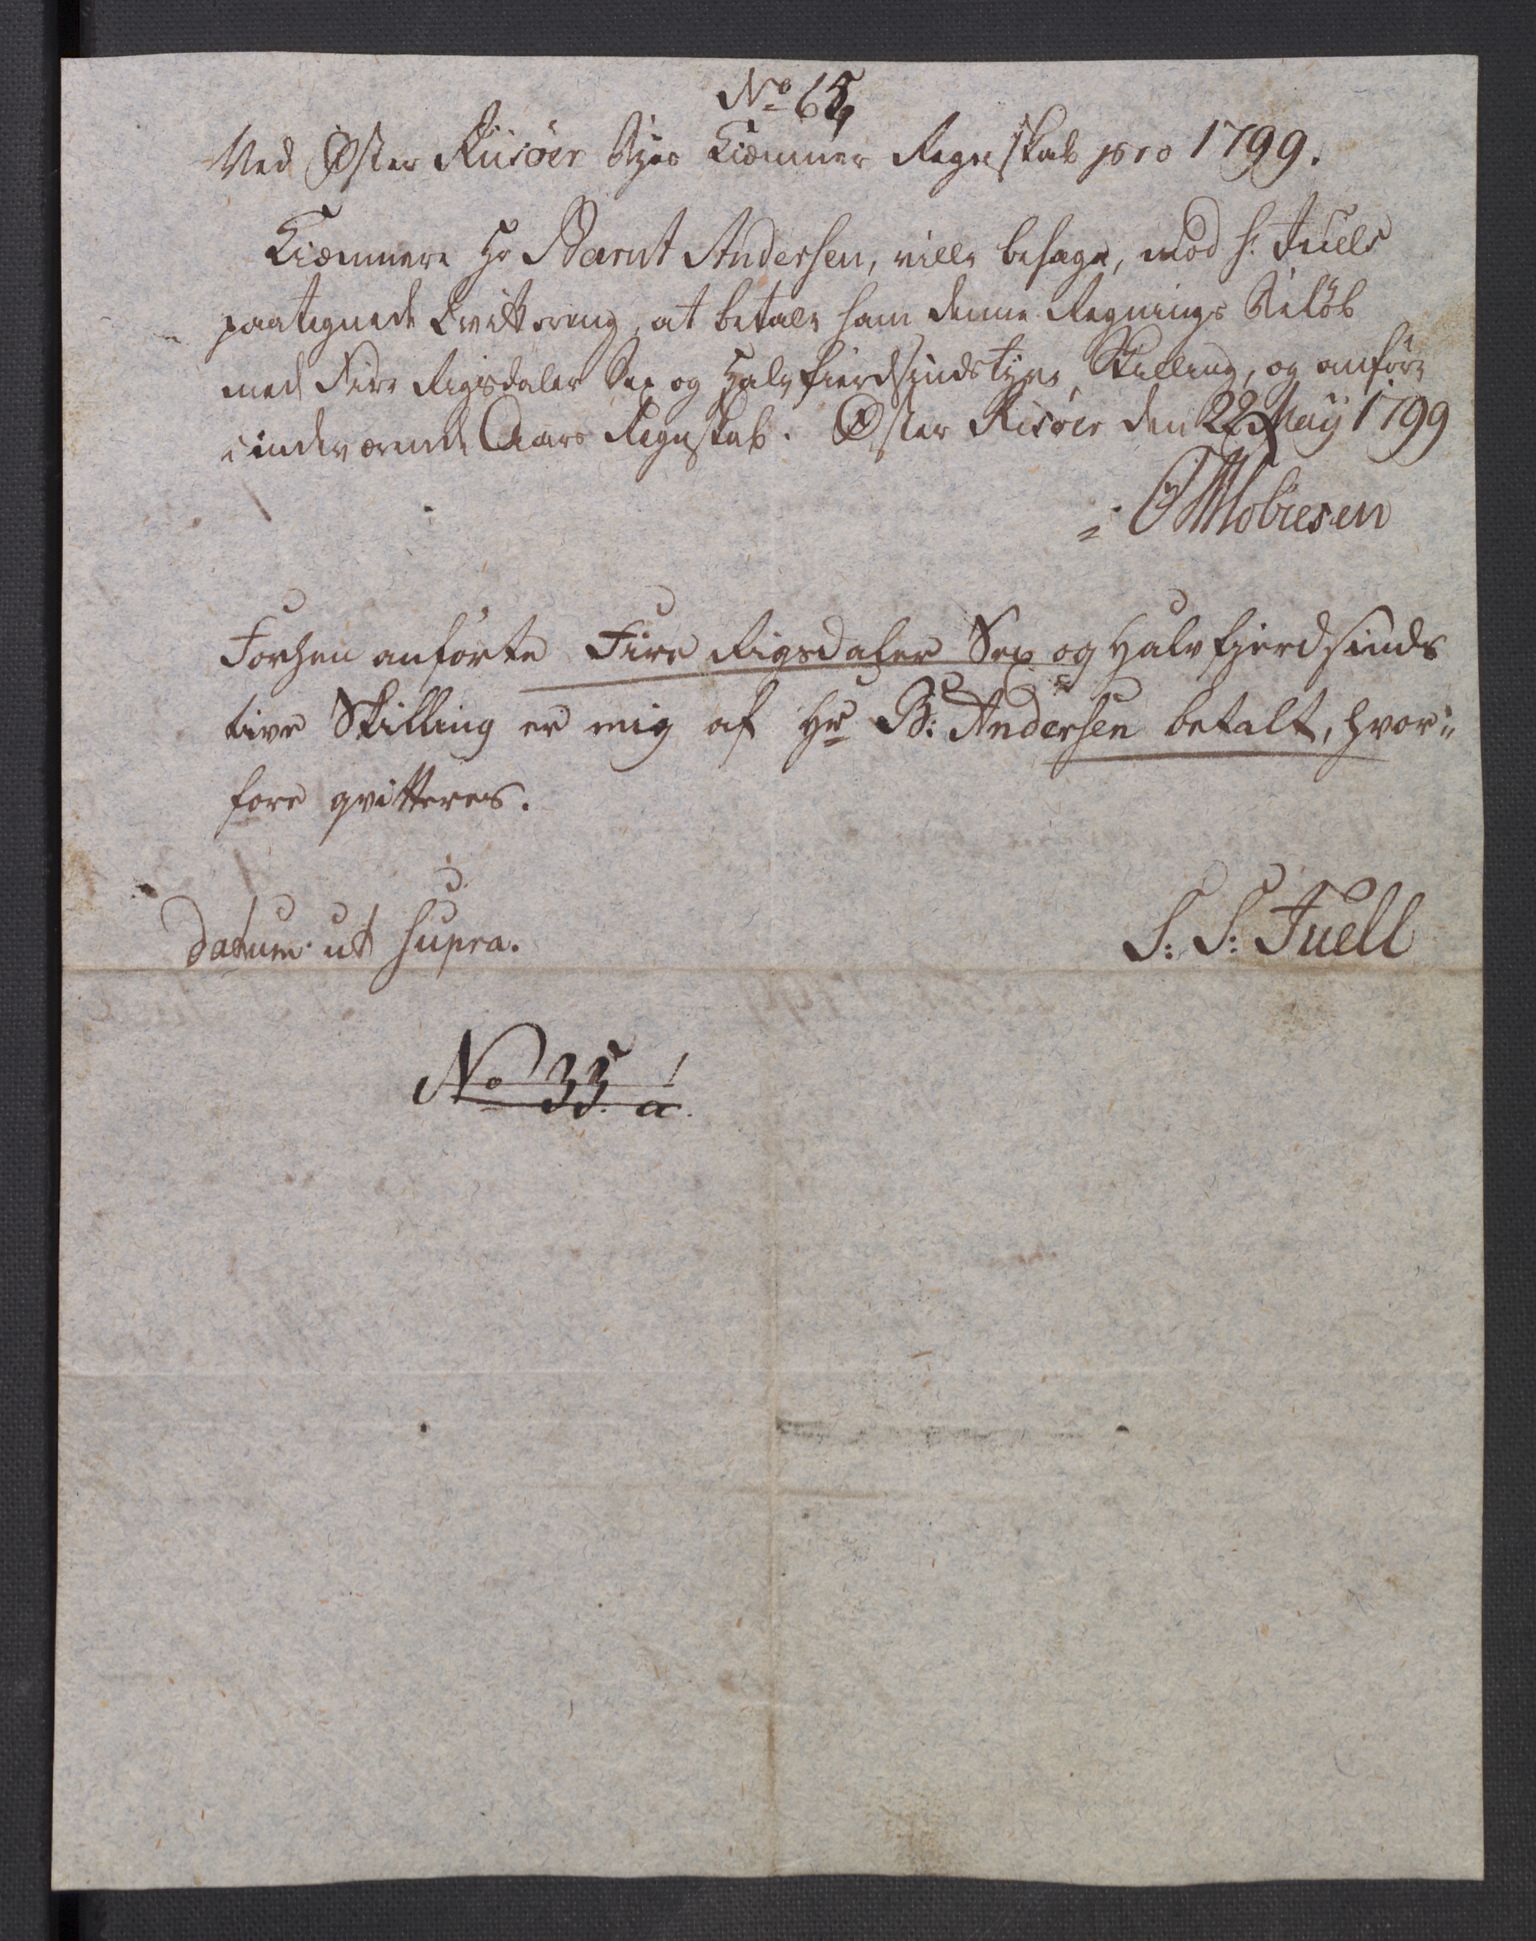 No 65
Ved Øster Riisöer Byes Kiæmner Regnskab pro 1799.
Kiæmner Hr Bærnt Andersen, ville behage, mod S. Juels
paategnede Qvittering, at betale ham denne Regnings Beløb
med Fire Rigsdaler Sex og Halvfierdsindstyve Skilling, og anføre
i indeværende Aars Regnskab. Øster Risöer den 22 May 1799
Forhen anförte Fire Rigsdaler Sex og Halvfjerdsinds
tive Skilling er mig af Hr B: Andersen betalt, hvor-
fore qvitteres.
Datum ut supra.
S: S: Juell
No 35 a